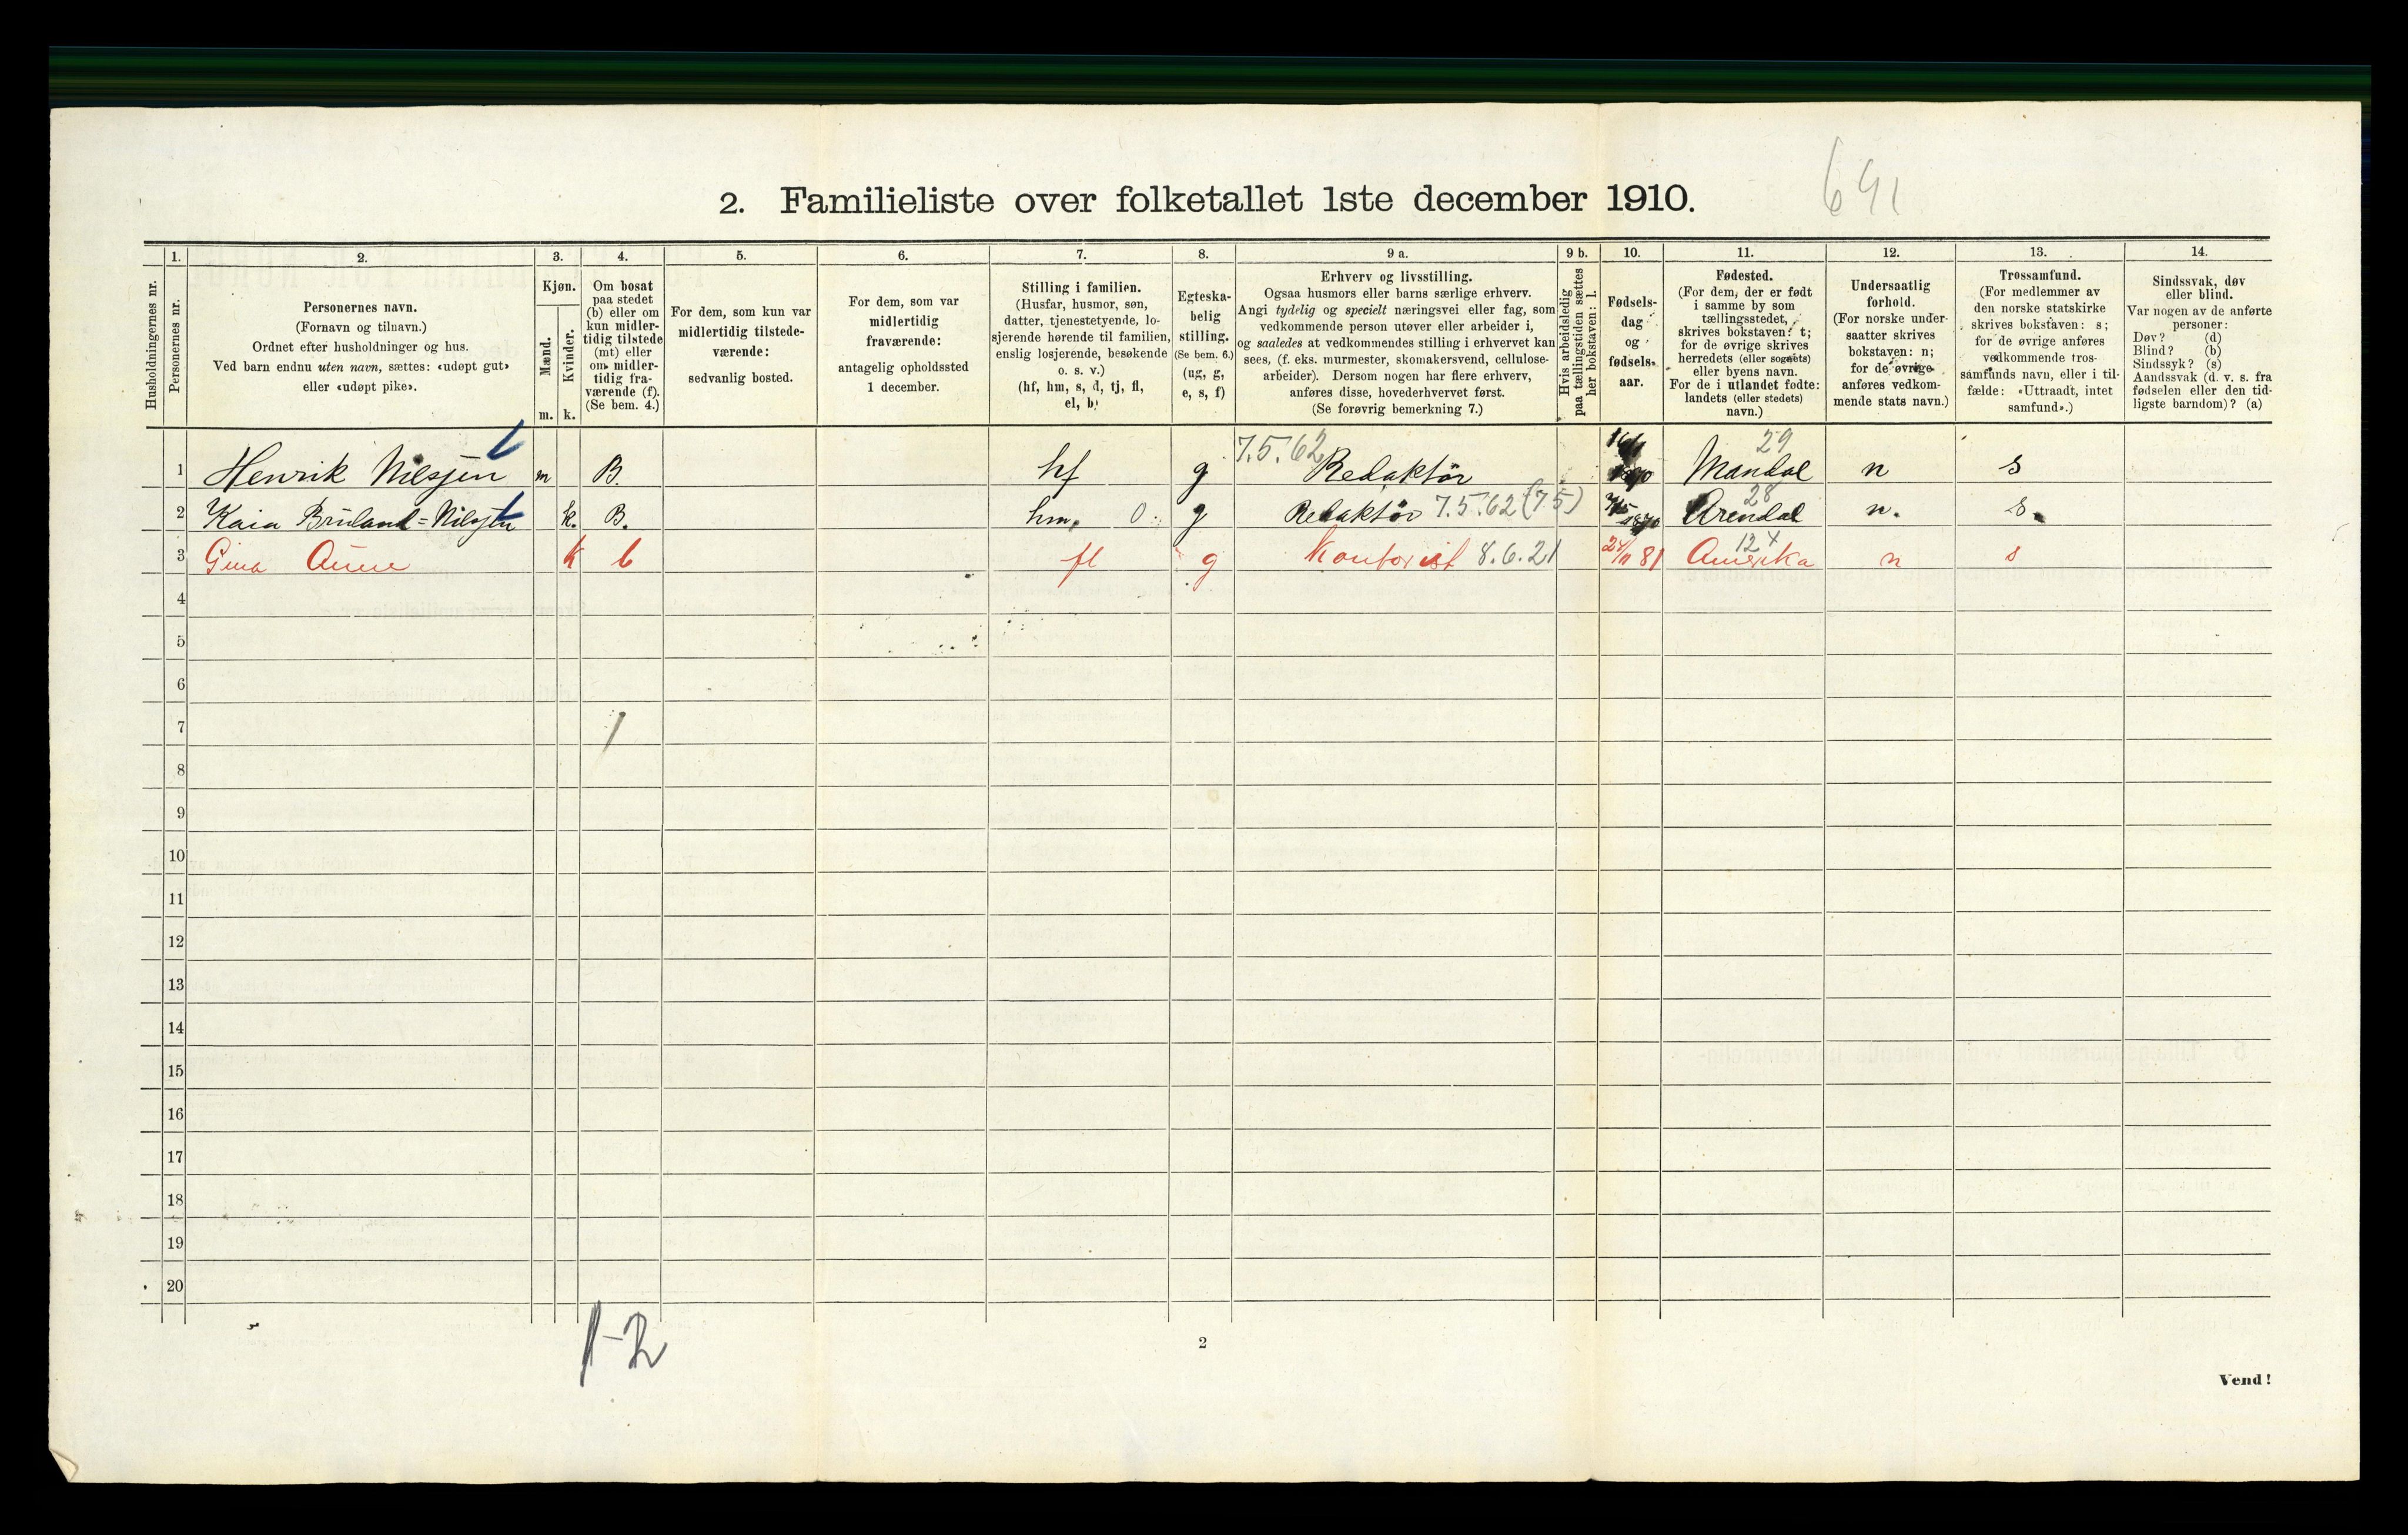 2. Familieliste over folketallet 1ste december 1910.
691
Husholdningernes nr.
1.
Personernes nr.
2.
Personernes navn.
(Fornavn og tilnavn.)
Ordnet efter husholdninger og hus.
Ved barn endnu uten navn, sættes: «udøpt gut»
eller «udøpt pike».
3.
Kjøn.
Mænd.
Kvinder.
m. k.
4.
Om bosat
paa stedet
(b) eller om
kun midler-
tidig tilstede
(mt) eller
om midler-
tidig fra-
værende (f).
(Se bem. 4.)
5.
For dem, som kun var
midlertidig tilstede-
værende:
sedvanlig bosted.
6.
For dem, som var
midlertidig
fraværende:
antagelig opholdssted
1 december.
7.
Stilling i familien.
(Husfar, husmor, søn,
datter, tjenestetyende, lo-
sjerende hørende til familien,
enslig losjerende, besøkende
o. s. v.)
(hf, hm, s, d, tj, fl,
el, b)
8.
Egteska-
belig
stilling.
(Se bem. 6.)
(ug, g,
e, s, f)
9 a.
Erhverv og livsstilling.
Ogsaa husmors eller barns særlige erhverv.
Angi tydelig og specielt næringsvei eller fag, som
vedkommende person utøver eller arbeider i,
og saaledes at vedkommendes stilling i erhvervet kan
sees, (f. eks. murmester, skomakersvend, cellulose-
arbeider). Dersom nogen har flere erhverv,
anføres disse, hovederhvervet først.
(Se forøvrig bemerkning 7.)
9 b.
Hvis arbeidsledig
paa tællingstiden sættes
her bokstaven: l.
10.
Fødsels-
dag
og
fødsels-
aar.
11.
Fødested.
(For dem, der er født
i samme by som
tællingsstedet,
skrives bokstaven: t;
for de øvrige skrives
herredets (eller sognets)
eller byens navn.
For de i utlandet fødte:
landets (eller stedets)
navn.)
12.
Undersaatlig
forhold.
(For norske under-
saatter skrives
bokstaven: n;
for de øvrige
anføres vedkom-
mende stats navn.)
13.
Trossamfund.
(For medlemmer av
den norske statskirke
skrives bokstaven: s;
for de øvrige anføres
vedkommende tros-
samfunds navn, eller i til-
fælde: «Uttraadt, intet
samfund».)
14.
Sindssvak, døv
eller blind.
Var nogen av de anførte
personer:
Døv? (d)
Blind? (b)
Sindssyk? (s)
Aandssvak (d. v. s. fra
fødselen eller den tid-
ligste barndom)? (a)
1 Henrik Nilssen m B. hf g 7.5.62 Redaktör Mandal 29 n s
2 Kaia Bruland=Nilssen k. B. hm. 0 g Redaktör 7.5.62 (75) 1870 Arendal 28 n. s.
3 Gina Aune k b fl g Kontorist 8.6.21 24/11 81 Amerika 124 n s
4
5
6
7
8
9
10
11
12
13
14
15
16
17
18
19
20
1-2
2
Vend!